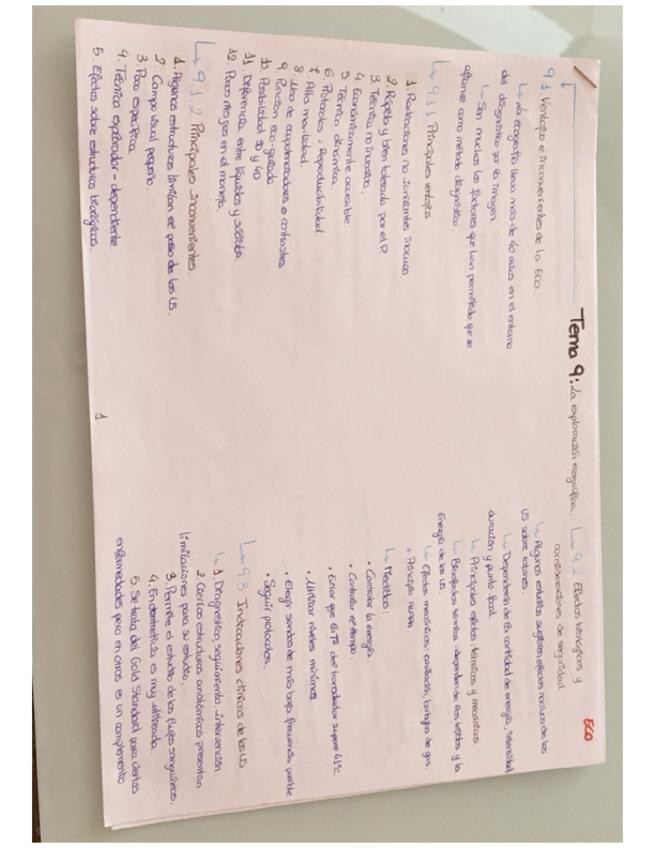 ECO
Tema 9: La exploración ecográfica.
9.1 Ventajas e inconvenientes de la ECO
↳ La ecografía lleva más de 40 años en el entorno
del diagnóstico por la imagen
↳ Son muchos los factores que han permitido que se
afiance como método diagnóstico.
↳ 9.1.1 Principales ventajas
1. Radiaciones no ionizantes inocuas
2. Rápido y bien tolerado por el P.
3. Técnica no invasiva.
4. Económicamente accesible
5. Técnica dinámica.
6. Protocolos = Reproducibilidad.
7. Alta movilidad.
8. Uso de ecopotenciadores o contrastes
9. Punción eco-guiada
10. Posibilidad 3D y 4D
11. Diferencia entre líquidos y sólidos.
12. Pocos riesgos en el manejo.
↳ 9.1.2 Principales inconvenientes.
1. Algunas estructuras limitan el paso de los US.
2. Campo visual pequeño.
3. Poco específica.
4. Técnica explorador-dependiente.
5. Efectos sobre estructuras biológicas.
↳ 9.2 Efectos biológicos y
consideraciones de seguridad
↳ Algunos estudios sugieren efectos nocivos de los
US sobre ratones.
↳ Dependerán de la cantidad de energía, intensidad
duración y punto focal.
↳ Principales efectos: térmicos y mecánicos.
↳ Bioefectos térmicos: dependen de los tejidos y la
energía de los US.
↳ Efectos mecánicos: cavitación, burbujas de gas.
• Principio ALARA
↳ Medidas:
• Controlar la energía.
• Controlar el tiempo
• Evitar que la Tª del transductor supere 41ºC.
• Utilizar niveles mínimos
• Elegir sondas de más baja frecuencia posible
• Seguir protocolos.
↳ 9.3 Indicaciones clínicas de los US
↳ 1. Diagnóstico, seguimiento, intervención
2. Ciertas estructuras anatómicas presentan
limitaciones para su estudio.
3. Permite el estudio de los flujos sanguíneos.
4. En obstetricia es muy utilizada.
5. Se trata del Gold Standard para ciertas
enfermedades pero en otras es un complemento
1